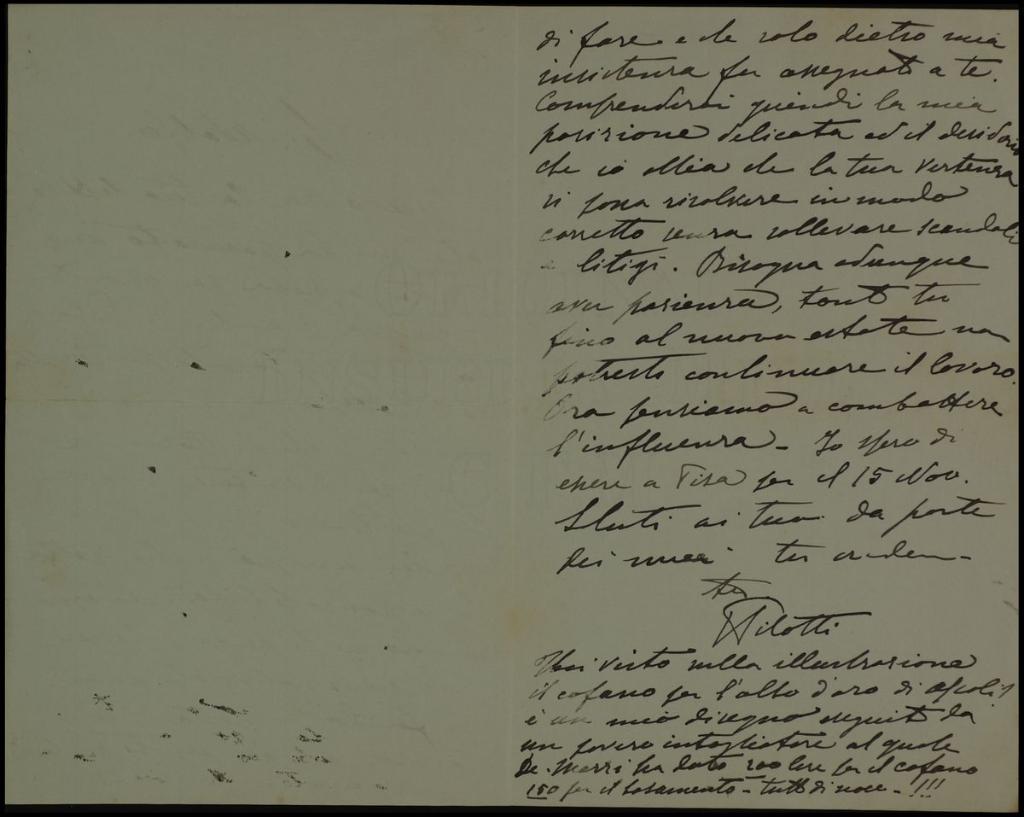 di fare e che solo dietro mia
insistenza fu assegnato a te.
Comprenderai quindi la mia
posizione delicata ed il desiderio
che io abbia che la tua vertenza
si possa risolvere in modo
corretto senza sollevare scandali
e litigi. Bisogna adunque
aver pazienza, tanto tu
fino al nuovo estate non
potresti continuare il lavoro.
Ora pensiamo a combattere
l'influenza - Io spero di
essere a Pisa per il 15 Nov.
Saluti ai tuoi da parte
dei miei
Pilotti
Hai visto nella illustrazione
il cofano per l'albo d'oro di Ascoli
è un mio disegno eseguito da
un povero intagliatore al quale
ha dato 200 lire per il cofano
150 per il basamento - tutto di noce - !!!